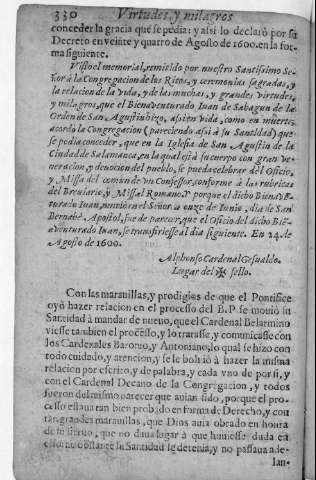 330 Virtudes, y milagros
conceder la gracia que se pedia: y assi lo declarò por su
Decreto en veinte y quatro de Agosto de 1600. en la for-
ma siguiente.
Visto el memorial, remitido por nuestro Santissimo Se-
ñor à la Congregacion de los Ritos, y ceremonias sagradas, y
la relacion de la vida, y de las muchas, y grandes virtudes,
y milagros, que el Bienaventurado Iuan de Sahagun de la
Orden de San Agustin hizo, assi en vida, como en muerte;
acordò la Congregacion (pareciendo assi à su Santidad) que
se podia conceder, que en la Iglesia de San Agustin de la
Ciudad de Salamanca, en la qual està su cuerpo con gran ve-
neracion, y devocion del pueblo, se pueda celebrar del Oficio,
y Missa del comun de un Confessor, conforme à las rubricas
del Breviario, y Missal Romano. Y porque el dicho Bienave-
turado Iuan, murió en el Señor à onze de Iunio, dia de San
Bernabè Apostol, fue de parecer, que el Oficio del dicho Bie-
aventurado Iuan, se transfiriesse al dia siguiente. En 24. de
Agosto de 1600.
Alphonso Cardenal Gesualdo.
Lugar del ✠ sello.
Con las maravillas, y prodigios de que el Pontifice
oyò hazer relacion en el processo del B. P. se moviò su
Santidad à mandar de nuevo, que el Cardenal Belarmino
viesse tambien el processo, y lo tratasse, y comunicasse con
los Cardenales Baronio, y Antoniano, lo qual se hizo con
todo cuidado, y atencion, y se le bolviò à hazer la misma
relacion por escrito, y de palabra, y cada vno de por si, y
con el Cardenal Decano de la Congregacion, y todos
fueron del mismo parecer que avian sido, porque el pro-
cesso estava tan bien probado en forma de Derecho, y con
tan grandes maravillas, que Dios avia obrado en honra
de su siervo, que no dava lugar à que huviesse duda en
no obstante su Santidad se detenia, y no passava ade-
lan-